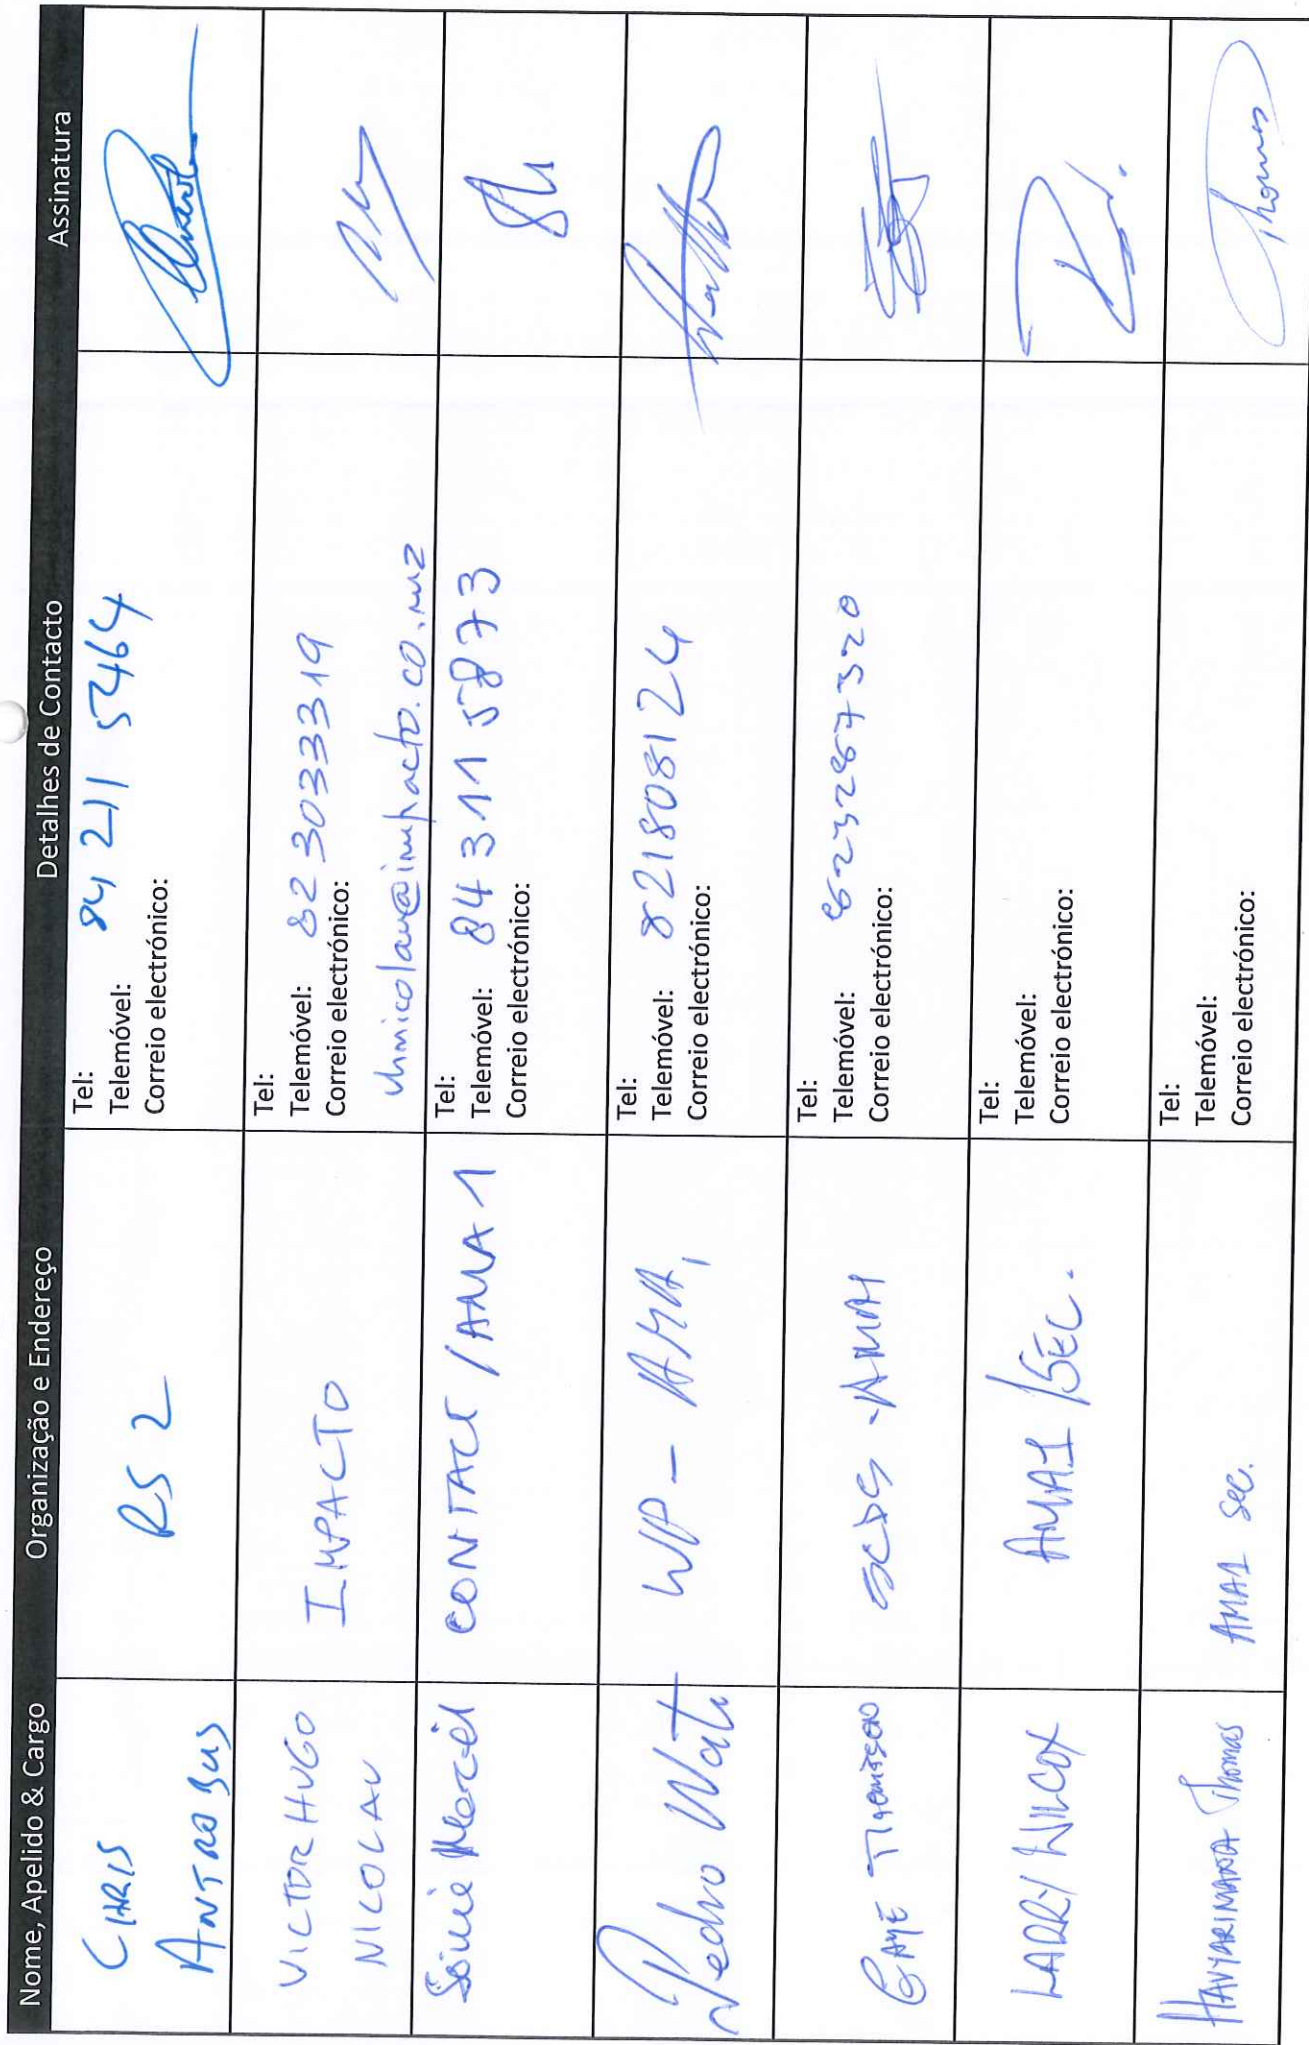 Nome, Apelido & Cargo Organização e Endereço Detalhes de Contacto Assinatura
CHRIS
ANTROBUS
RS 2
Tel: 84 211 5464
Telemóvel:
Correio electrónico:
VICTOR HUGO
NICOLAU
IMPACTO
Tel:
Telemóvel: 82 3033319
Correio electrónico:
vhnicolau@impacto.co.mz
CONTACT / AMA 1
Tel:
Telemóvel: 84 311 5873
Correio electrónico:
Pedro Wate
WP - AMA1
Tel:
Telemóvel: 821808124
Correio electrónico:
AMA1
Tel:
Telemóvel:
Correio electrónico:
LARRY WILCOX
AMA1 / SEC.
Tel:
Telemóvel:
Correio electrónico:
HAVYARIMANA Thomas
AMA1 Sec.
Tel:
Telemóvel:
Correio electrónico:
Thomas